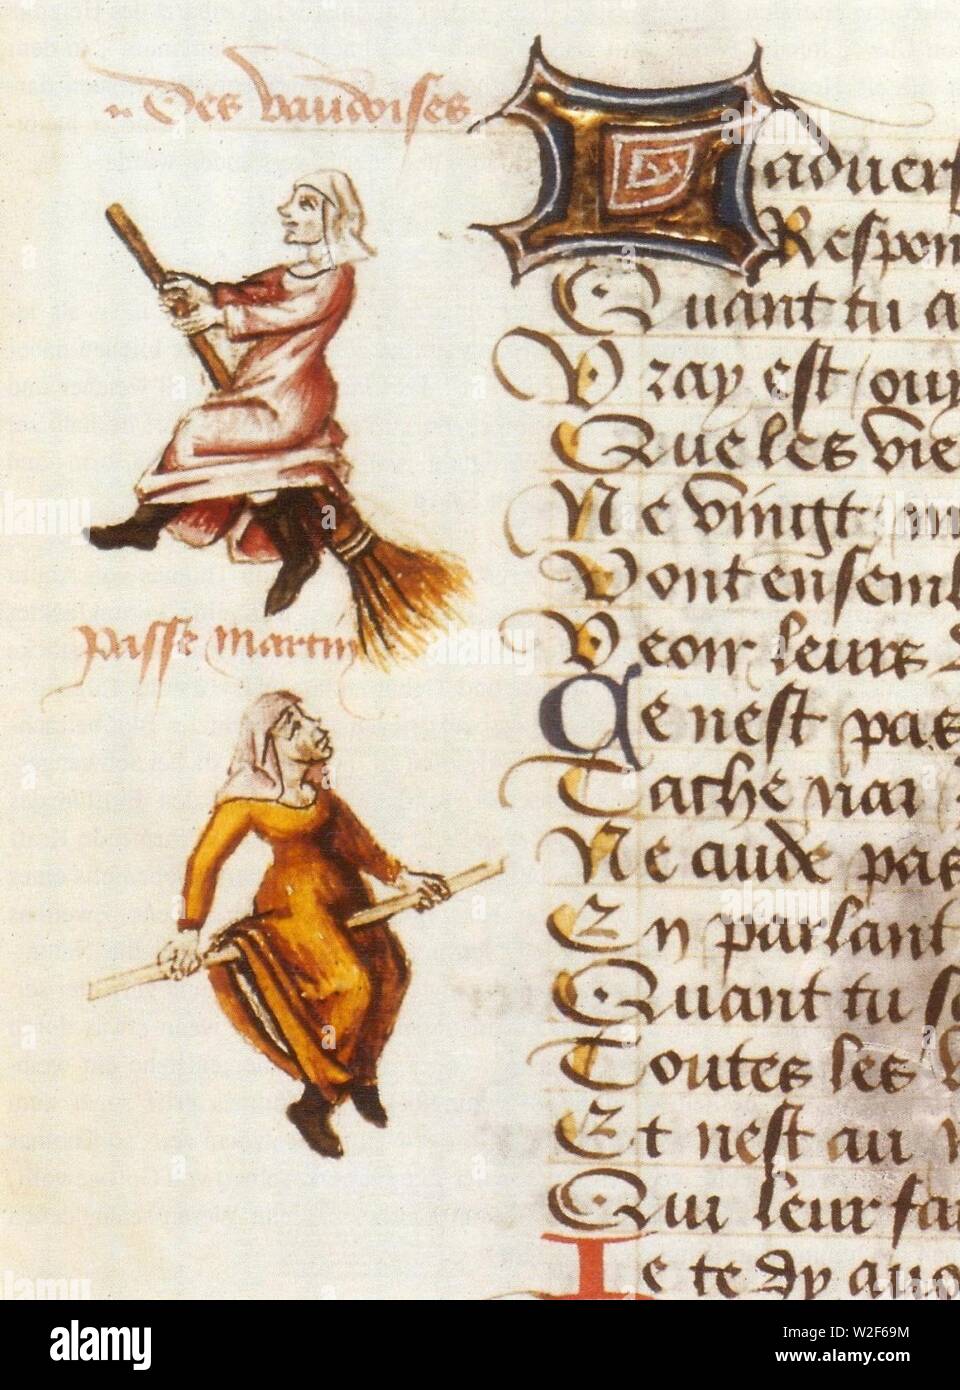 Des vaudoises
Passe martin
L
aduers
Respon
Quant tu a
Vray est ouy
Que les vie
Ne vingt
Vont ensemb
Veoir leurs
Ce nest pas
Tache nai
Ne aude pas
En parlant
Quant tu
Toutes les
Et nest au
Qui leur fai
Ie te dy
alamy
Image ID: W2F69M
www.alamy.com